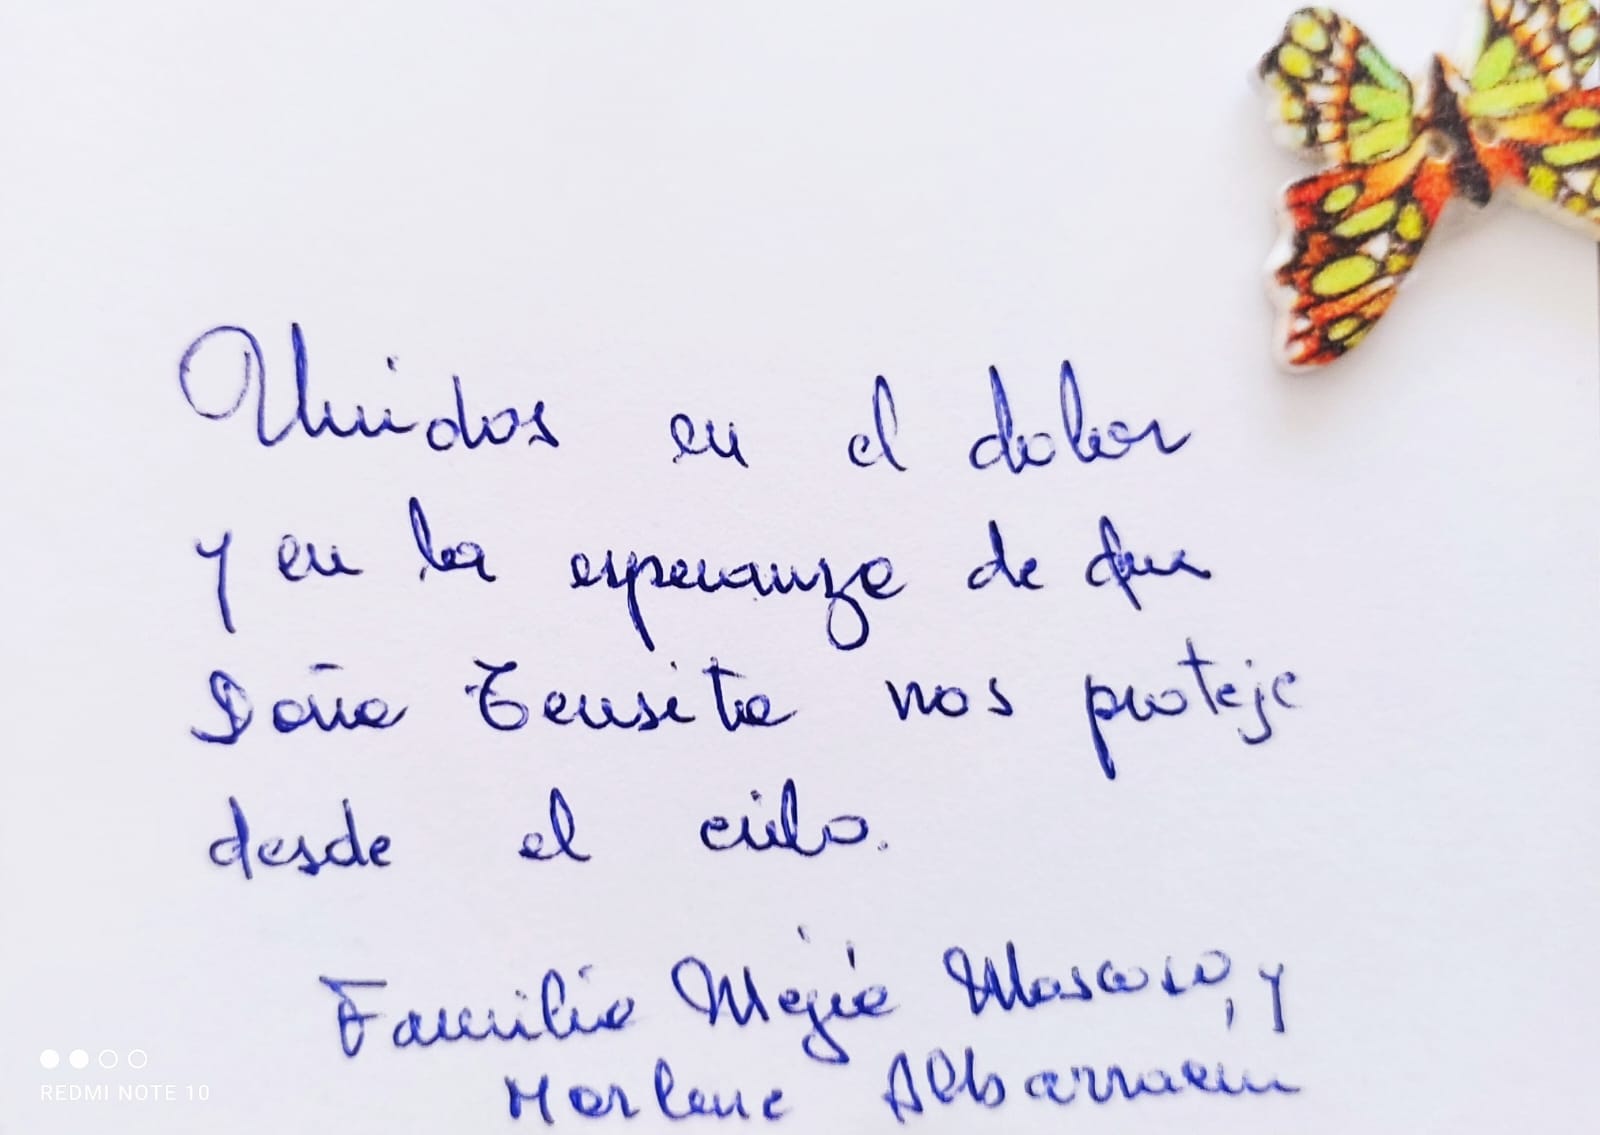 Unidos en el dolor
y en la esperanza de que
Doña Tensita nos proteje
desde el cielo.
Familia Mejía Moscoso, y
Marlene Albarracin
REDMI NOTE 10